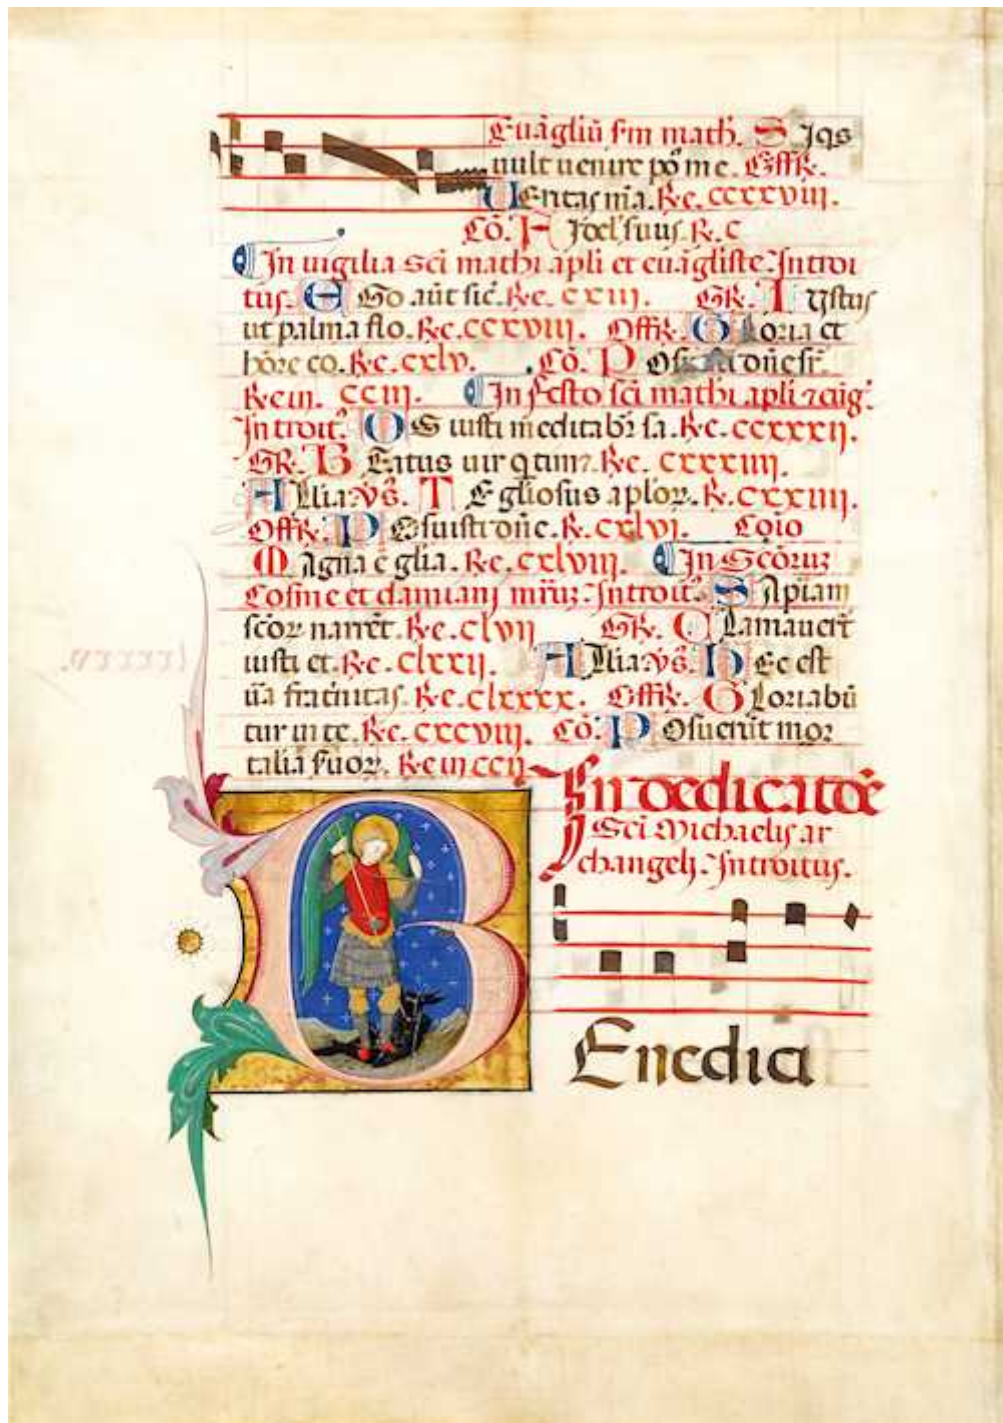 Euāgliū s'm math'. S iq̄s
uult uenire pꝰ me. Offr̄.
Ueritas m̄a. R̄e. ccxxxviii.
Cō. F
R̄. c
In uigilia sci mathi apli et euāgliste. Introi
tus. E Go aūt sic̄. R̄e. cxiii. GR̄. I ustus
ut palma flo. R̄e. ccxviii. Offr̄. G loria et
hōre co. R̄e. cxlv. Cō. P
R̄e in. cciii. In festo sci mathi apli ⁊
Introit'. O S iusti meditabr̄ sa. R̄e. ccxxxii.
GR̄. B Eatus uir q̄ tim⁊. R̄e. cxxxiiii.
A llia. v̄s. T E gliosus aploꝝ. R̄. cxxxiiii.
Offr̄. P Osuisti dn̄e. R̄. cxlvi. Coīo
M Agna ē glia. R̄e. cxlviii. In Scōruꝫ
Cosme et damiani mr̄uꝫ. Introit'. S Apiam
scōꝝ narrēt. R̄e. clvii GR̄. C Lamauer̄t
iusti et. R̄e. clxxii. A llia. v̄s. H Ec est
ūa frat'nitas. R̄e. clxxxx. Offr̄. G Loriabū
tur in te. R̄e. cxcviii. Cō. P Osuer̄ut mor
talia suoꝝ. R̄e in ccii
In dedicatōe
Sci Michaelis ar
changeli. Introitus.
B Enedici